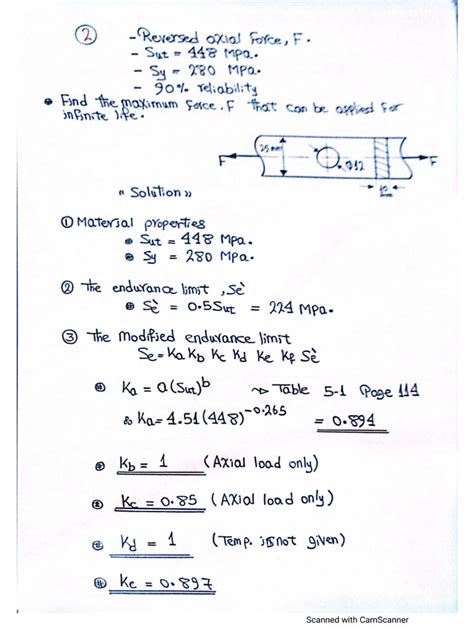 2
- Reversed axial Force, F.
- Sut = 448 MPa.
- Sy = 280 MPa.
- 90% reliability
Find the maximum force, F that can be applied for
infinite life.
25 mm
F
Ø12
F
10
mm
« Solution »
① Material properties
Sut = 448 MPa.
Sy = 280 MPa.
② The endurance limit, Sè
Sè = 0.5Sut = 224 MPa.
③ The Modified endurance limit
Se = Ka Kb Kc Kd Ke Kf Sè
Ka = a(Sut)^b ~> Table 5-1 Page 114
∴ Ka = 4.51(448)^-0.265 = 0.894
Kb = 1 (Axial load only)
Kc = 0.85 (Axial load only)
Kd = 1 (Temp. is not given)
Ke = 0.897
Scanned with CamScanner